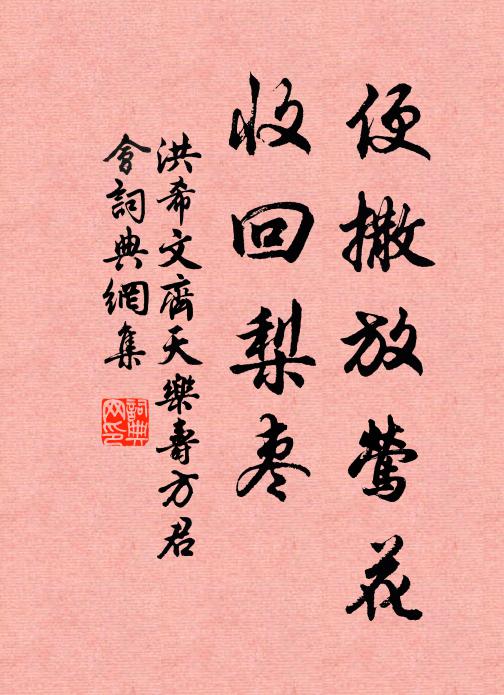 便撒放莺花
收回梨枣
洪希文齊天樂壽方君
會詞典網集
詞典
网印